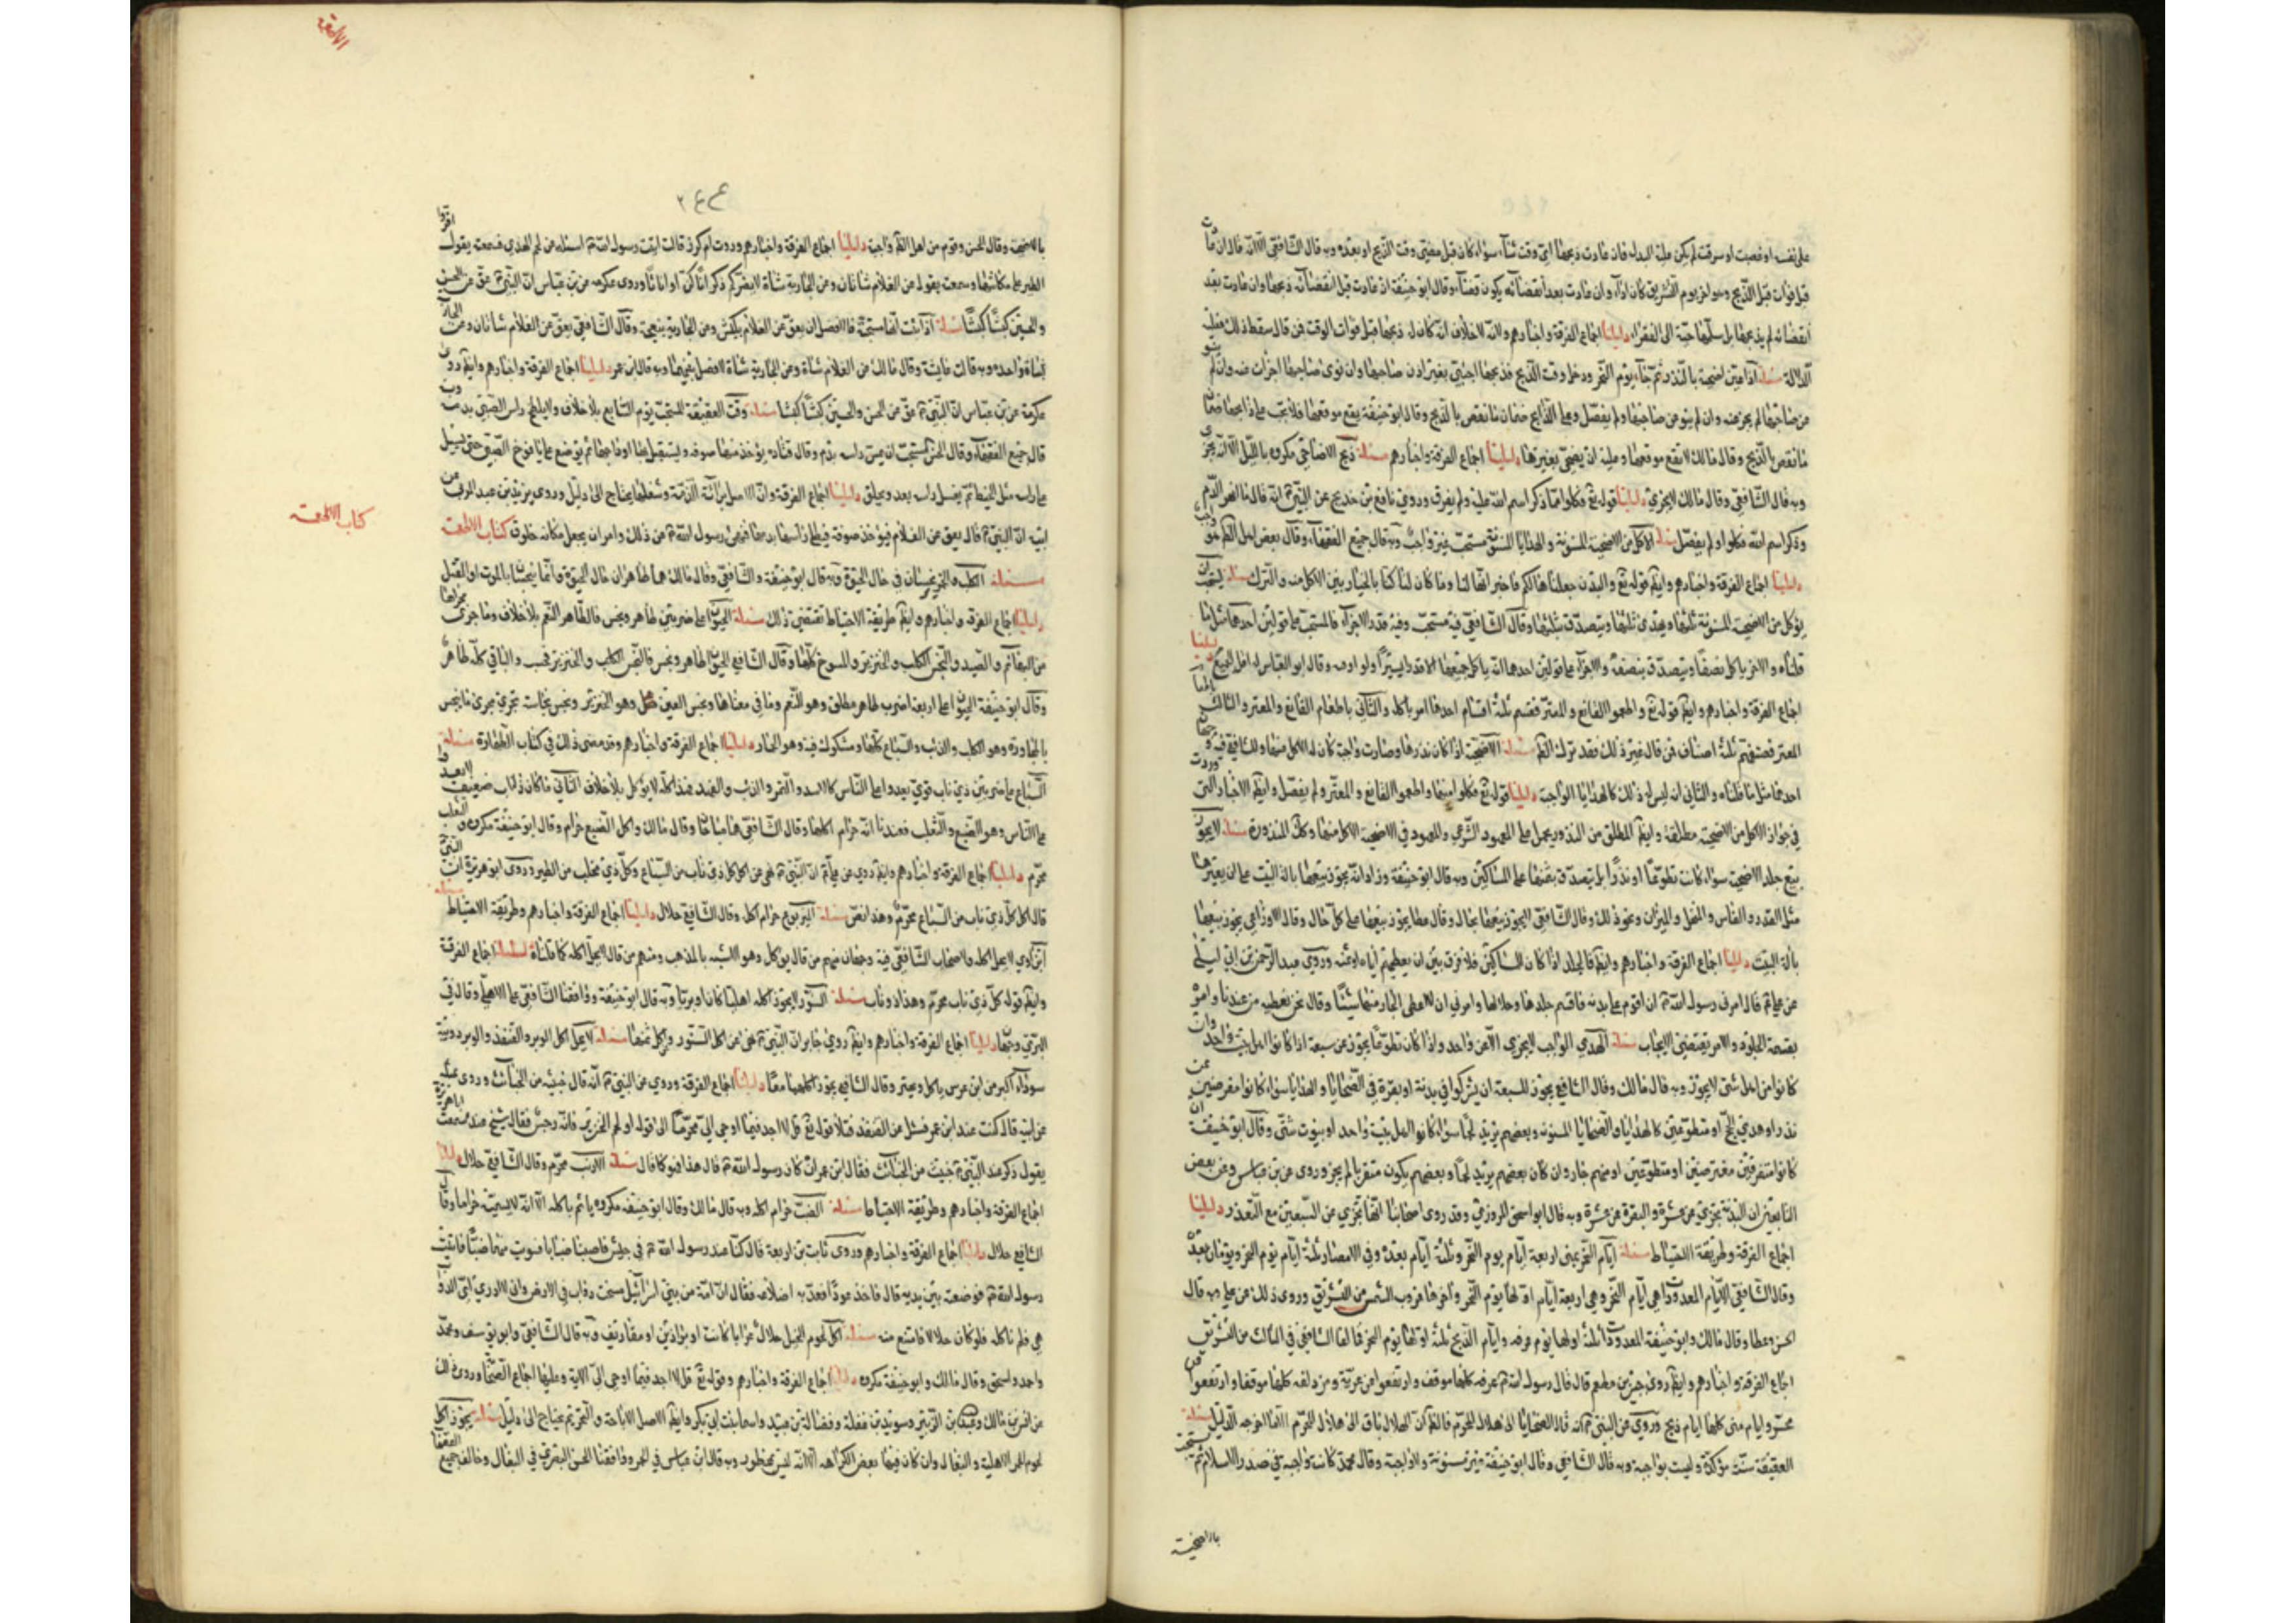 على نفسه او غصبت او سرقت لم يكن عليه البدل فان عادت ذبحها اي وقت شاء سواء كان قبل مضي وقت الذبح او بعده وبه قال الشافعي الا انه قال ان
قبل فوات قبل الذبح وهو اخر يوم التشريق كان اداء وان عادت بعد انقضائه يكون قضاء وقال ابو حنيفة ان عادت قبل انقضائه ذبحها وان عادت بعد
انقضائه لم يذبحها بل سلمها حية الى الفقراء دليلنا اجماع الفرقة واخبارهم ولانه لا خلاف انه كان له ذبحها قبل فوات الوقت فمن قال سقط ذلك فعليه
الدلالة مسئلة اذا عين اضحية بالنذر ثم جاء يوم النحر ودخل وقت الذبح فذبحها اجنبي بغير اذن صاحبها وان نوى صاحبها اجزأت عنه وان لم ينو
عن صاحبها لم يجز عنه وان لم ينو عن صاحبها ولم يفصل وعلى الذابح ضمان ما نقص بالذبح وقال ابو حنيفة يقع موقعها فلا يجب على ذابحها ضمان
ما نقص بالذبح وقال مالك لا تقع موقعها وعليه ان يضحي بغيرها دليلنا اجماع الفرقة واخبارهم مسئلة ذبح الاضاحي مكروه بالليل الا انه يجزي
وبه قال الشافعي وقال مالك لا يجزي دليلنا قوله تع فكلوا مما ذكر اسم الله عليه ولم يفرق وروي نافع بن خديج عن النبي م انه قال ما انهر الدم
وذكر اسم الله فكلوا ولم يفصل مسئلة الاكل من الاضحية المسنونة والهدايا المسنونة مستحب غير واجب وبه قال جميع الفقهاء وقال بعض اهل الظم هو واجب
دليلنا اجماع الفرقة واخبارهم وايضم قوله تع والبدن جعلناها لكم فاخبر انها لنا وما كان لنا كنا بالخيار بين الاكل منه والترك مسئلة يستحب ان
يؤكل من الاضحية المسنونة ثلثها ويهدى ثلثها ويتصدق بثلثها وقال الشافعي فيه مستحب وفيه قدر الاجزاء فالمستحب على قولين احدهما مثل ما
قلناه والاخر ياكل نصفا ويتصدق بنصفه والاجزاء على قولين احدهما انه ياكل جميعها الا قدرا يسيرا ولو اوقيه وقال ابو العباس له اكل الجميع دليلنا
اجماع الفرقة واخبارهم وايضم قوله تع واطعموا القانع والمعتر فقسم ثلثة اقسام احدها امر باكله والثاني باطعام القانع والمعتر والثالث باطعام
المعتر قصفهم ثلثة اصناف فمن قال غير ذلك فقد ترك الظم مسئلة الاضحية اذا كان نذرها وصارت واجبة كان له الاكل منها وللشافعي فيه وجهان
احدهما مثل ما قلناه والثاني ان ليس له ذلك كالهدايا الواجبة دليلنا قوله تع فكلوا منها واطعموا القانع والمعتر ولم يفصل وايضم الاخبار التي وردت
في جواز الاكل من الاضحية مطلقة وايضم المطلق من النذور يحمل على المعهود الشرعي والمعهود في الاضحية الاكل منها وكل المنذورة مسئلة لا يجوز
بيع جلد الاضحية سواء كانت تطوعا او نذرا بل يتصدق بثمنها على المساكين وبه قال ابو حنيفة وزاد انه يجوز بيعها بالة البيت على ان يعيرها
مثل القدر والفاس والمنخل والميزان ونحو ذلك وقال الشافعي لا يجوز بيعها بحال وقال عطا يجوز بيعها على كل حال وقال الاوزاعي يجوز بيعها
بالة البيت دليلنا اجماع الفرقة واخبارهم وايضم فالجلد اذا كان للمساكين فلا فرق بين ان يعطيهم اياه او ثمنه وروى عبد الرحمن بن ابي ليلى
عن علي م قال امرني رسول الله م ان اقوم على بدنه فاقسم جلدها وجلالها وامرني ان لا اعطي الجازر منها شيئا وقال نحن نعطيه من عندنا وامر
بقسمة الجلود والامر يقتضي الايجاب مسئلة الهدي الواجب لا يجزي الا عن واحد واذا كان تطوعا يجوز عن سبعة اذا كانوا اهل بيت واحد وان
كانوا من اهل شتى لا يجوز وبه قال مالك وقال الشافعي يجوز للسبعة ان يشتركوا في بدنة او بقرة في الضحايا والهدايا سواء كانوا مفترضين عن
نذر او هدي الحج او متطوعين كالهدايا والضحايا المسنونه وبعضهم يريد لحما سواء كانوا اهل بيت واحد او بيوت شتى وقال ابو حنيفة ان
كانوا متفرقين مفترضين او متطوعين او منهم جاز وان كان بعضهم يريد لحما وبعضهم يكون متقربا لم يجز وروى عن بن عباس وعن بعض
التابعين ان البدنة تجزي عن عشرة والبقرة عن عشرة وبه قال ابو اسحق المروزي وقد روى اصحابنا انها تجزي عن السبعين مع التعذر دليلنا
اجماع الفرقة وطريقة الاحتياط مسئلة ايام النحر بمنى اربعة ايام يوم النحر وثلثة ايام بعده وفي الامصار ثلثة ايام يوم النحر ويومان بعده
وقال الشافعي الايام المعدودات هي ايام النحر وهي اربعة ايام اولها يوم النحر واخرها غروب الشمس من التشريق وروى ذلك عن علي وبه قال
الحسن وعطا وقال مالك وابو حنيفة المعدودات ثلثة اولها يوم عرفه وايام الذبح ثلثة اولها يوم النحر خالفا الشافعي في الثالث من التشريق
اجماع الفرقة واخبارهم وايضم روى جبير بن مطعم قال قال رسول الله م عرفه كلها موقف وارتفعوا عن عرنة ومزدلفه كلها موقف وارتفعوا عن
محسر وايام منى كلها ايام ذبح وروي عن النبي م انه قال الضحايا الى هلال المحرم فالظم ان الهلال باق الى هلال المحرم الا ما اخرجه الدليل مسئلة
العقيقة سنة مؤكدة وليست بواجبة وبه قال الشافعي وقال ابو حنيفة غير مسنونة ولا واجبة وقال محمد كانت واجبة في صدر الاسلام ثم نسخت
بالاضحية
الاطعمة
٢٤٤
بالاضحية وقال الحسن وقوم من اهل الظم واجبة دليلنا اجماع الفرقة واخبارهم وروت ام كرز قالت اتيت رسول الله م اسئله من لحم الهدي فسمعت يقول اقروا
الطير على مكاناتها وسمعت يقول عن الغلام شاتان وعن الجارية شاة لا يضركم ذكرانا كن او اناثا وروى عكرمه عن بن عباس ان النبي م عق عن الحسن
والحسين كبشا كبشا مسئلة اذا ثبت انها مستحبة فالافضل ان يعق عن الغلام بكبش وعن الجارية بنعجة وقال الشافعي يعق عن الغلام شاتان وعن الجارية
بشاة واحده وبه قالت عايشة وقال مالك عن الغلام شاة وعن الجارية شاة لا فضل بينهما وبه قال ابن عمر دليلنا اجماع الفرقة واخبارهم وايضم روى
عكرمة عن بن عباس ان النبي م عق عن الحسن والحسين كبشا كبشا مسئلة وقت العقيقة المستحب يوم السابع بلا خلاف ولا يلطخ راس الصبي بدم وبه
قال جميع الفقهاء وقال الحسن يستحب ان يمس راسه بدم وقال قتاده يؤخذ منها صوفه ويستقبل بها اوداجها ثم يوضع على يافوخ الصبي حتى يسيل
على راسه مثل الخيط ثم يغسل راسه بعد ويحلق دليلنا اجماع الفرقة وان الاصل برائة الذمة وشغلها يحتاج الى دليل وروى يزيد بن عبد المزني عن
ابيه ان النبي م قال يعق عن الغلام فيؤخذ صوفة فيلطخ راسها بدمها فنهى رسول الله م عن ذلك وامر ان يجعل مكانه خلوق كتاب الاطعمة
كتاب الاطعمة
مسئلة الكلب والخنزير نجسان في حال الحيوة وبه قال ابو حنيفة والشافعي وقال مالك هما طاهران حال الحيوة وانما ينجسان بالموت او القتل
دليلنا اجماع الفرقة واخبارهم وايضم طريقة الاحتياط تقتضي ذلك مسئلة الحيوان على ضربين طاهر ونجس فالطاهر النعم بلا خلاف وما جرى مجراها
من البهائم والصيد والنجس الكلب والخنزير والمسوخ كلها وقال الشافعي الحيوان طاهر ونجس فالنجس الكلب والخنزير فحسب والباقي كله طاهر
وقال ابو حنيفة الحيوان على اربعة اضرب طاهر مطلق وهو النعم وما في معناها ونجس العين وهو الخنزير ونجس نجاسة تجري مجرى ما ينجس
بالمجاورة وهو الكلب والذئب والسباع كلها ومشكوك فيه وهو الحمار دليلنا اجماع الفرقة واخبارهم وقد مضى ذلك في كتاب الطهارة مسئلة
السباع على ضربين ذي ناب قوي يعدو على الناس كالاسد والنمر والذئب والفهد فهذا كله لا يؤكل بلا خلاف الثاني ما كان ذا ناب ضعيف لا يعدو
على الناس وهو الضبع والثعلب فعندنا انه حرام اكلها وقال الشافعي هما مباحان وقال مالك اكل الضبع حرام وقال ابو حنيفة مكروه والثعلب
محرم دليلنا اجماع الفرقة واخبارهم وايضم روي عن علي م ان النبي م نهى عن اكل كل ذي ناب من السباع وكل ذي مخلب من الطير وروى ابو هريرة ان النبي
قال اكل كل ذي ناب من السباع محرم وهذا نص مسئلة اليربوع حرام اكله وقال الشافعي حلال دليلنا اجماع الفرقة واخبارهم وطريقة الاحتياط مسئلة
ابن اوي لا يحل اكله ولاصحاب الشافعي فيه وجهان منهم من قال يؤكل وهو الاشبه بالمذهب ومنهم من قال لا يحل اكله كما قلناه دليلنا اجماع الفرقة
وايضم قوله كل ذي ناب محرم وهذا ذو ناب مسئلة السنور لا يجوز اكله اهليا كان او بريا وبه قال ابو حنيفة ووافقنا الشافعي على الاهلي وقال في
البري وجهان دليلنا اجماع الفرقة واخبارهم وايضم روى جابر ان النبي م نهى عن اكل السنور وعن اكل ثمنها مسئلة لا يحل اكل الوبر والقنفذ والوبر دويبة
سوداء اكبر من ابن عرس ياكل ويجتر وقال الشافعي يجوز اكلهما معا دليلنا اجماع الفرقة وروي عن النبي م انه قال خبيثه من الخبائث وروى نميلة
عن ابيه قال كنت عند ابن عمر فسئل عن القنفذ فتلا قوله تع قل لا اجد فيما اوحي الي محرما الى قوله او لحم الخنزير فانه رجس فقال شيخ عنده سمعت ابا هريرة
يقول ذكر عند النبي م خبيث من الخبائث فقال ابن عمر ان كان رسول الله م قال هذا فهو كما قال مسئلة الارنب محرم وقال الشافعي حلال دليلنا
اجماع الفرقة واخبارهم وطريقة الاحتياط مسئلة الضب حرام اكله وبه قال مالك وقال ابو حنيفه مكروه ياثم باكله الا انه لا يسميه حراما وقال
الشافعي حلال دليلنا اجماع الفرقة واخبارهم وروى ثابت بن وديعة قال كنا عند رسول الله م في جيش فاصبنا ضبابا فشويت منها ضبا فاتيت
رسول الله م فوضعته بين يديه قال فاخذ عودا فعد به اضلاعه فقال ان امة من بني اسرائيل مسخت دواب في الارض واني لا ادري اي الدواب
هي فلم ناكله فلو كان حلالا لما امتنع منه مسئلة اكل لحوم الخيل حلال عرابا كانت او براذين او مقاريف وبه قال الشافعي وابو يوسف ومحمد
واحمد واسحق وقال مالك وابو حنيفة مكروه دليلنا اجماع الفرقة واخبارهم وقوله تع قل لا اجد فيما اوحي الي الاية وعليها اجماع الصحابة وروى ذلك
عن انس بن مالك وعبد الله بن الزبير وسويد بن غفلة وفضالة بن عبيد واسما بنت ابي بكر وايضم الاصل الاباحة والتحريم يحتاج الى دليل مسئلة يجوز اكل
لحوم الحمر الاهلية والبغال وان كان فيها بعض الكراهه الا انه ليس بمحظور وبه قال ابن عباس في الحمر ووافقنا الحسن البصري في البغال وخالف جميع الفقهاء